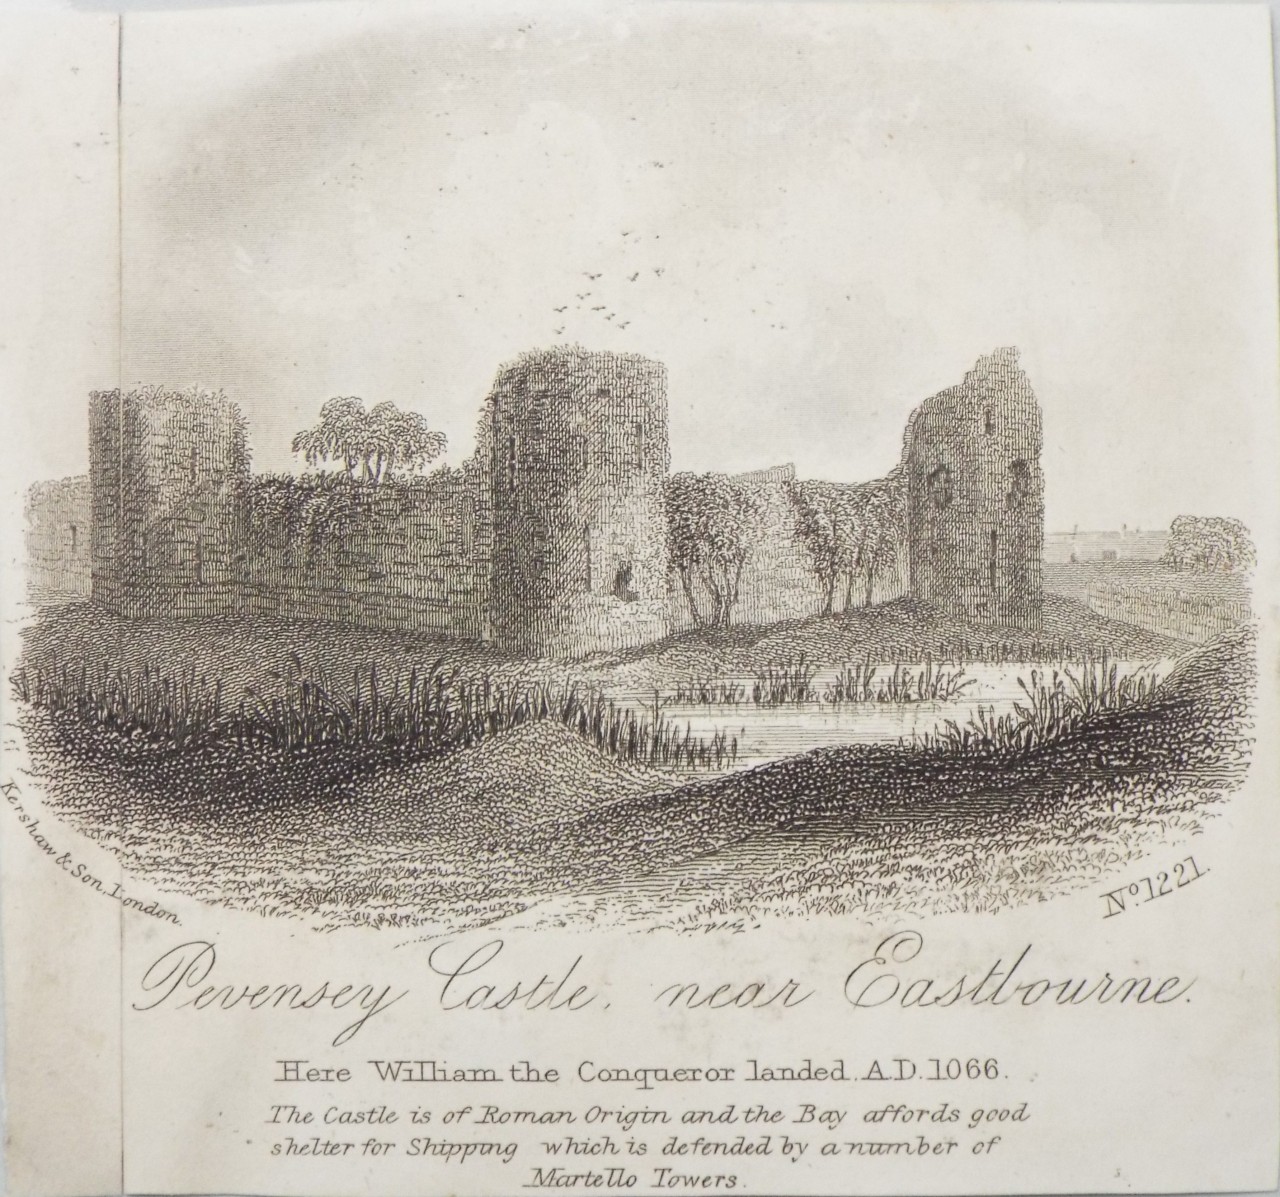 Kershaw & Son, London.
No. 1221.
Pevensey Castle, near Eastbourne.
Here William the Conqueror landed. A.D. 1066.
The Castle is of Roman Origin and the Bay affords good
shelter for Shipping which is defended by a number of
Martello Towers.